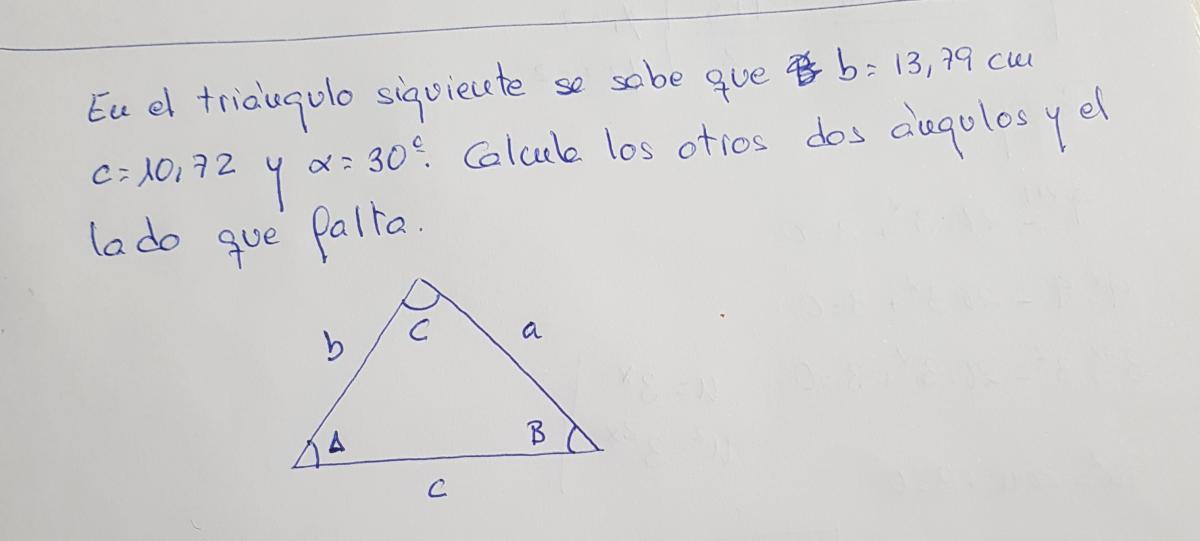 En el triángulo siguiente se sabe que b = 13,79 cm
c = 10,72 y α = 30°. Calcula los otros dos ángulos y el
lado que falta.
C
b
a
A
B
c